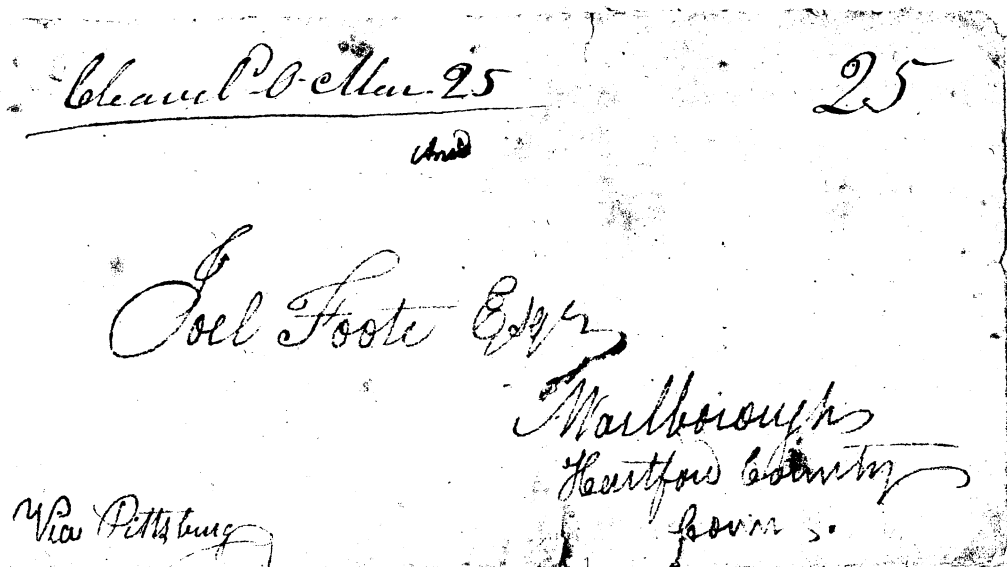 Cleavel P. O. Mar. 25
25
Joel Foote Esqr
Marlborough
Hartford County
Conn.
Via Pittsburg